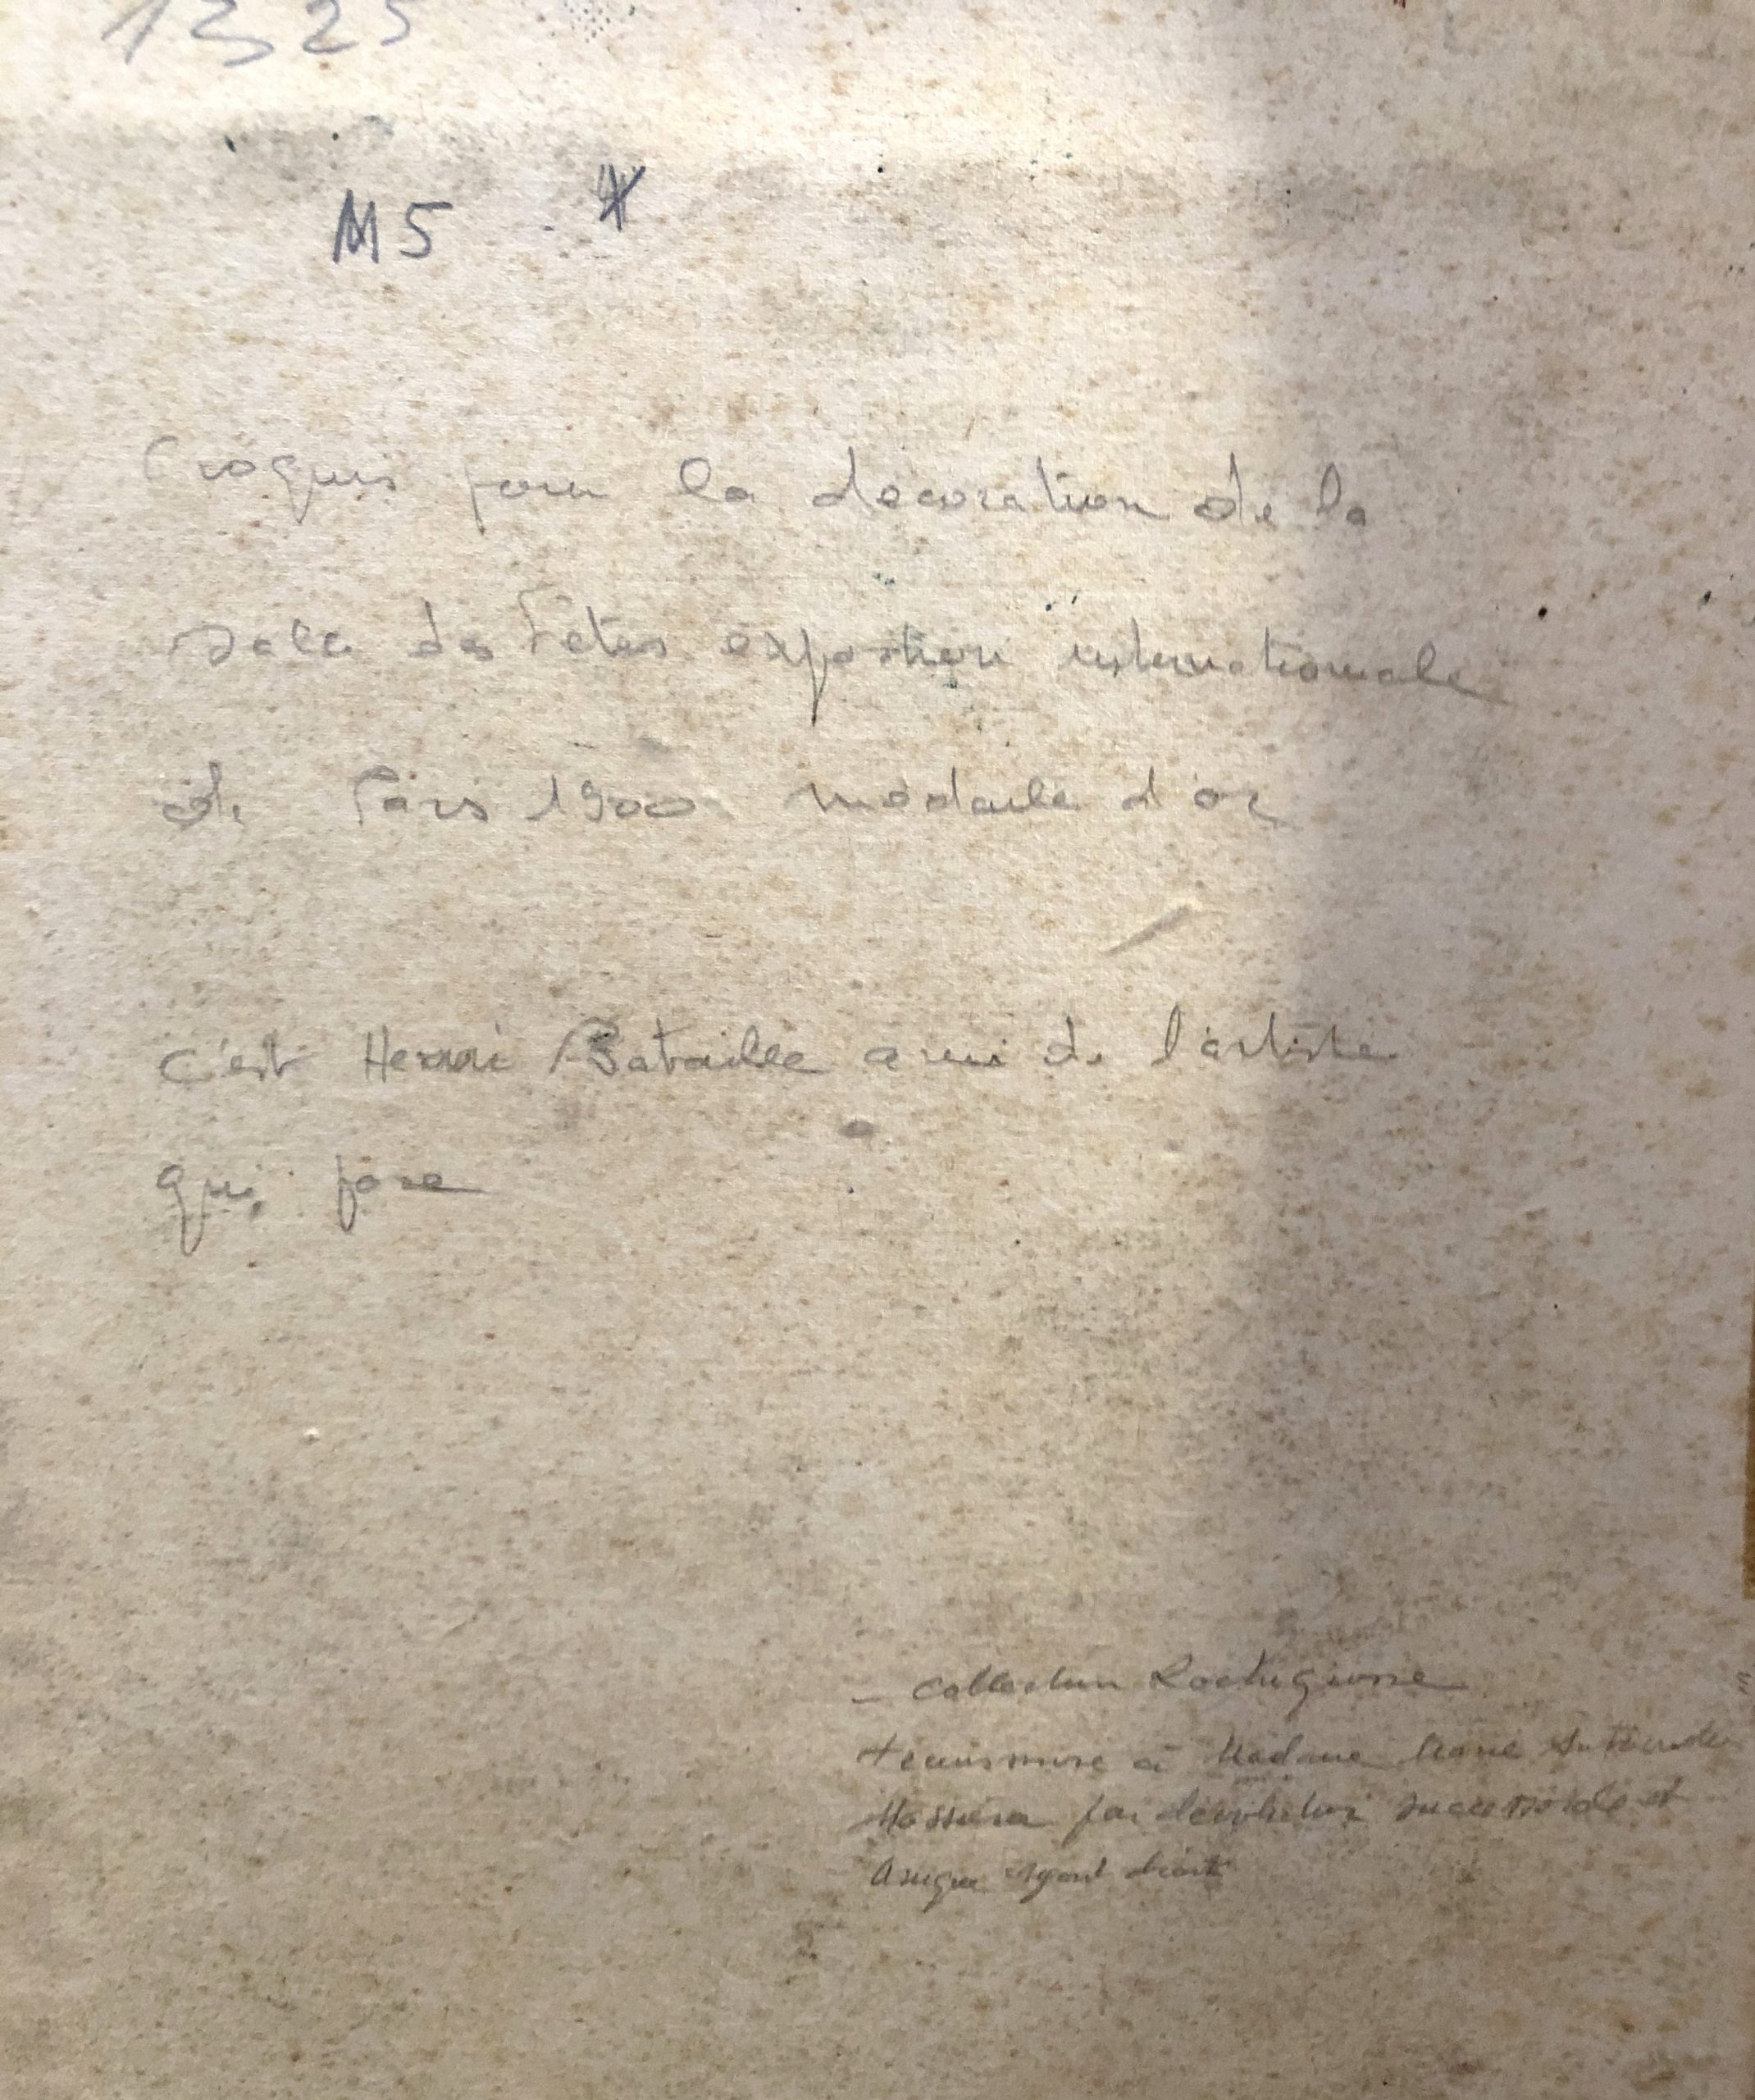 1325
M5
Croquis pour la decoration de la
salle des Fêtes exposition internationale
de Paris 1900 medaille d'or
c'est Henri Bataille ami de l'artiste
qui pose
- Collection
transmise à Madame
par devolution successorale et
ayant droit